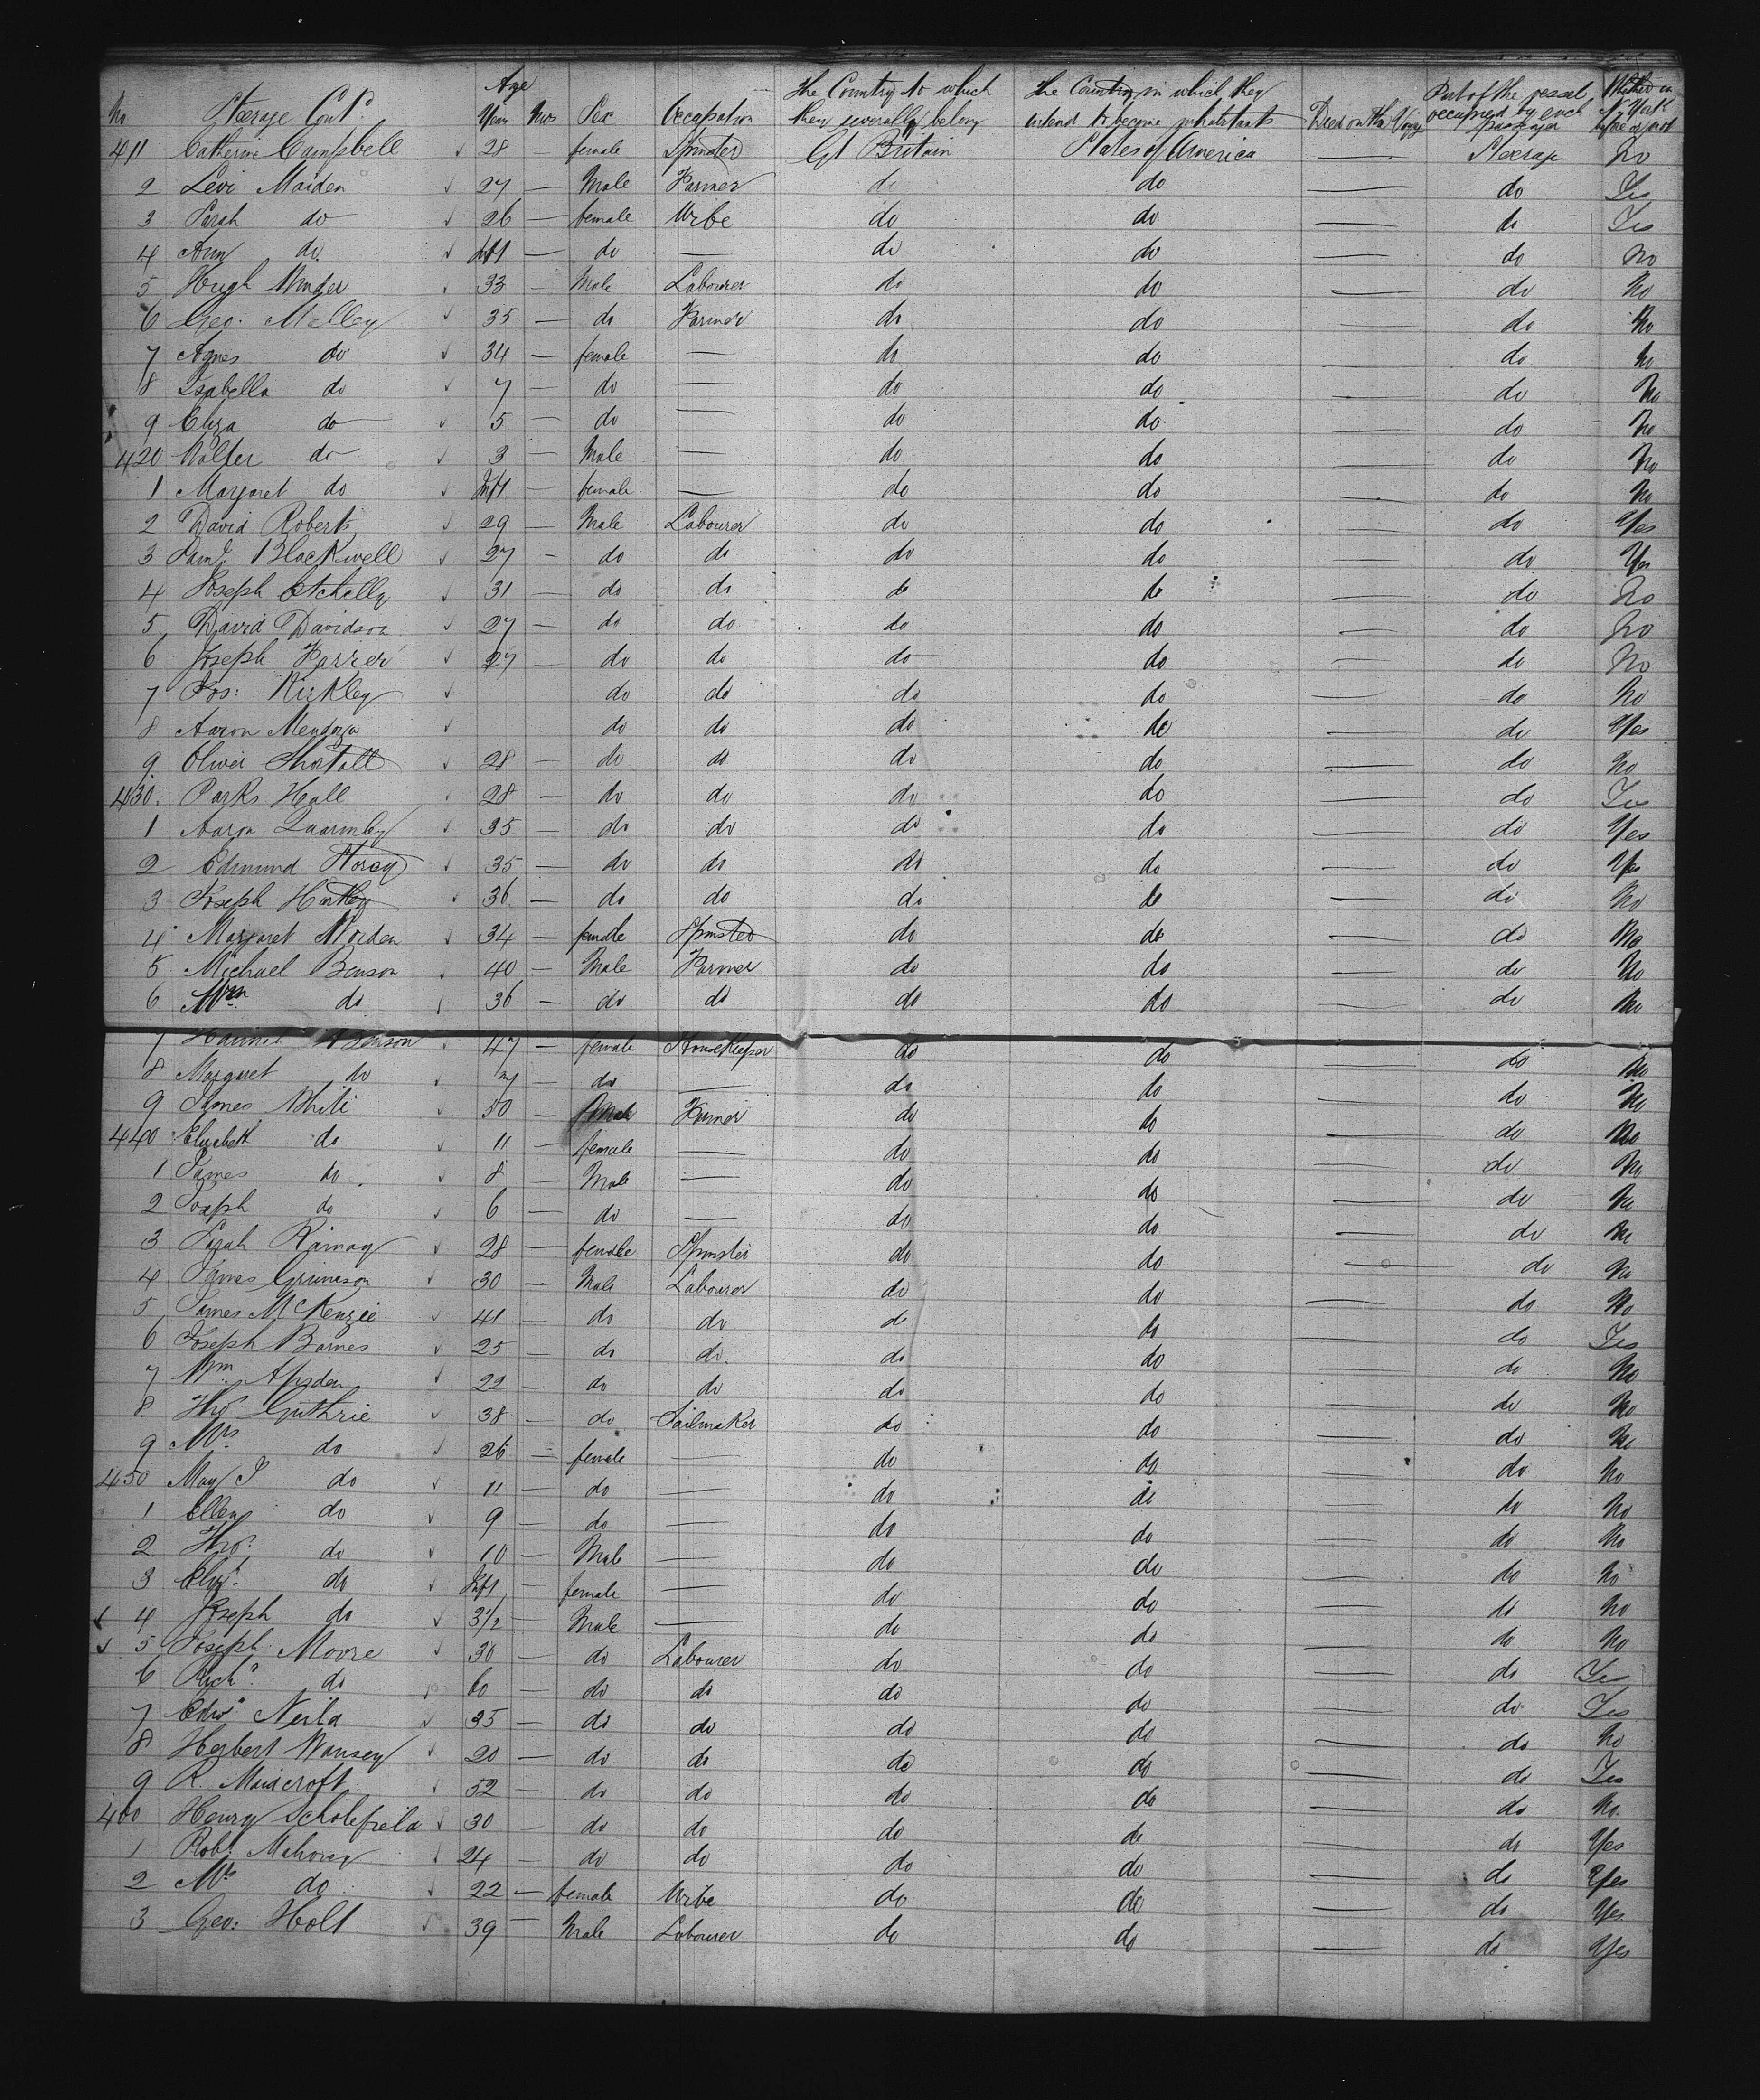 No Steerage Contd. Age Years Mos Sex Occupation The Country to which they severally belong The Country in which they intend to become inhabitants Died on the Voyage Part of the vessel occupied by each passenger Whether in N. York before or not
411 Catherine Campbell 28 — female Spinster Gt Britain States of America — Steerage No
2 Levi Maiden 27 — Male Farmer do do — do Yes
3 Sarah do 26 — female Wife do do — do Yes
4 Ann do Inft — do — do do — do No
5 Hugh 33 — Male Labourer do do — do No
6 Geo. Melley 35 — do Farmer do do — do No
7 Agnes do 34 — female — do do — do No
8 Isabella do 7 — do — do do — do No
9 Eliza do 5 — do — do do — do No
420 Walter do 3 — Male — do do — do No
1 Margaret do Inft — female — do do — do No
2 David Roberts 29 — Male Labourer do do — do Yes
3 Saml. Blackwell 27 — do do do do — do Yes
4 Joseph 31 — do do do do — do No
5 David Davidson 27 — do do do do — do No
6 Joseph Farrer 27 — do do do do — do No
7 Jos: Kirkley do do do do — do No
8 Aaron Mendoza do do do do — do Yes
9 Oliver Shortall 28 — do do do do — do No
430. Parks Hall 28 — do do do do — do Yes
1 Aaron Quarmby 35 — do do do do — do Yes
2 Edmund 35 — do do do do — do Yes
3 Joseph Hartley 36 — do do do do — do No
4 Margaret Worden 34 — female Spinster do do — do No
5 Michael Benson 40 — Male Farmer do do — do No
6 Wm do 36 — do do do do — do No
7 Benson 47 — female Housekeeper do do — do No
8 Margaret do 7 — do — do do — do No
9 James White 50 — Male Farmer do do — do No
440 Elizabeth do 11 — female — do do — do No
1 James do 8 — Male — do do — do No
2 Joseph do 6 — do — do do — do No
3 Sarah Ramay 28 — female Spinster do do — do No
4 James Grimason 30 — Male Labourer do do — do No
5 James McKenzie 41 — do do do do — do Yes
6 Joseph Barnes 25 — do do do do — do No
7 Wm. 22 — do do do do — do No
8 Tho. Guthrie 38 — do Sailmaker do do — do No
9 Mrs do 26 — female — do do — do No
450 Mary J do 11 — do — do do — do No
1 Ellen do 9 — do — do do — do No
2 Tho. do 10 — Male — do do — do No
3 Eliz. do Inft — female — do do — do No
4 Joseph do 3½ — Male — do do — do No
5 Joseph Moore 30 — do Labourer do do — do Yes
6 Richd. do 60 — do do do do — do Yes
7 Edwd. Neild 35 — do do do do — do No
8 Herbert Wansey 20 — do do do do — do Yes
9 R. 52 — do do do do — do No
460 Henry Scholefield 30 — do do do do — do Yes
1 Robt. Mahoney 24 — do do do do — do Yes
2 Mrs do 22 — female Wife do do — do Yes
3 Geo: Holt 39 — Male Labourer do do — do Yes